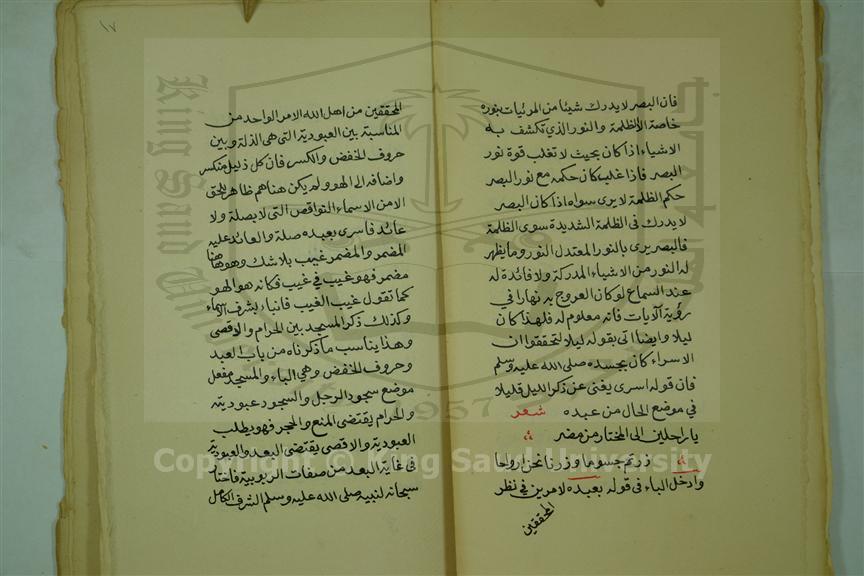 فان البصر لا يدرك شيئا من المرئيات بنوره
خاصة الاظلمة والنور الذي تكشف به
الاشياء اذا كان بحيث لا تغلب قوة نور
البصر فاذا غلب كان حكمه مع نور البصر
حكم الظلمة لا يرى سواه اذا كان البصر
لا يدرك في الظلمة الشديدة سوى الظلمة
فالبصر يرى بالنور المعتدل النور وما يظهر
له النور من الاشياء المدركة ولا فائدة له
عند السماع لو كان العروج به نهارا في
رؤية الآيات فانه معلوم له فلهذا كان
ليلا وايضا اتى بقوله ليلا لتحققوا ان
الاسراء كان بجسده صلى الله عليه وسلم
فان قوله اسرى يغنى عن ذكر الليل قليلا
في موضع الحال من عبده شعر
يا راحلين الى المختار من مضر
زرتم جسوما وزرنا نحن ارواحا
وادخل الباء في قوله بعبده لامرين في نظر
المحققين
١٧
المحققين من اهل الله الامر الواحد من
المناسبة بين العبودية التى هى الذلة وبين
حروف الخفض والكسر فان كل ذليل منكسر
واضافه الى الهو ولم يكن هنا هم ظاهر للحق
الا من الاسماء النواقص التى لا بصلة ولا
عائد فاسرى بعبده صلة والعائد عليه
المضمر والمضمر غيب بلا شك وهو هنا
مضمر فهو غيب في غيب فكانه هو الهو
كما تقول غيب الغيب فانباء بشرف الاسماء
وكذلك ذكر المسجد بين الحرام والاقصى
وهذا يناسب ما ذكرناه من باب العبد
وحروف الخفض وهي الباء والمسجد مفعل
موضع سجود الرجل والسجود عبوديته
والحرام يقتضى المنع والحجر فهو يطلب
العبودية والاقصى يقتضى البعد والعبودية
فى غاية البعد من صفات الربوبية فاختار
سبحانه لنبيه صلى الله عليه وسلم الشرف الكامل
Copyright © King Saud University
King Saud University
1957